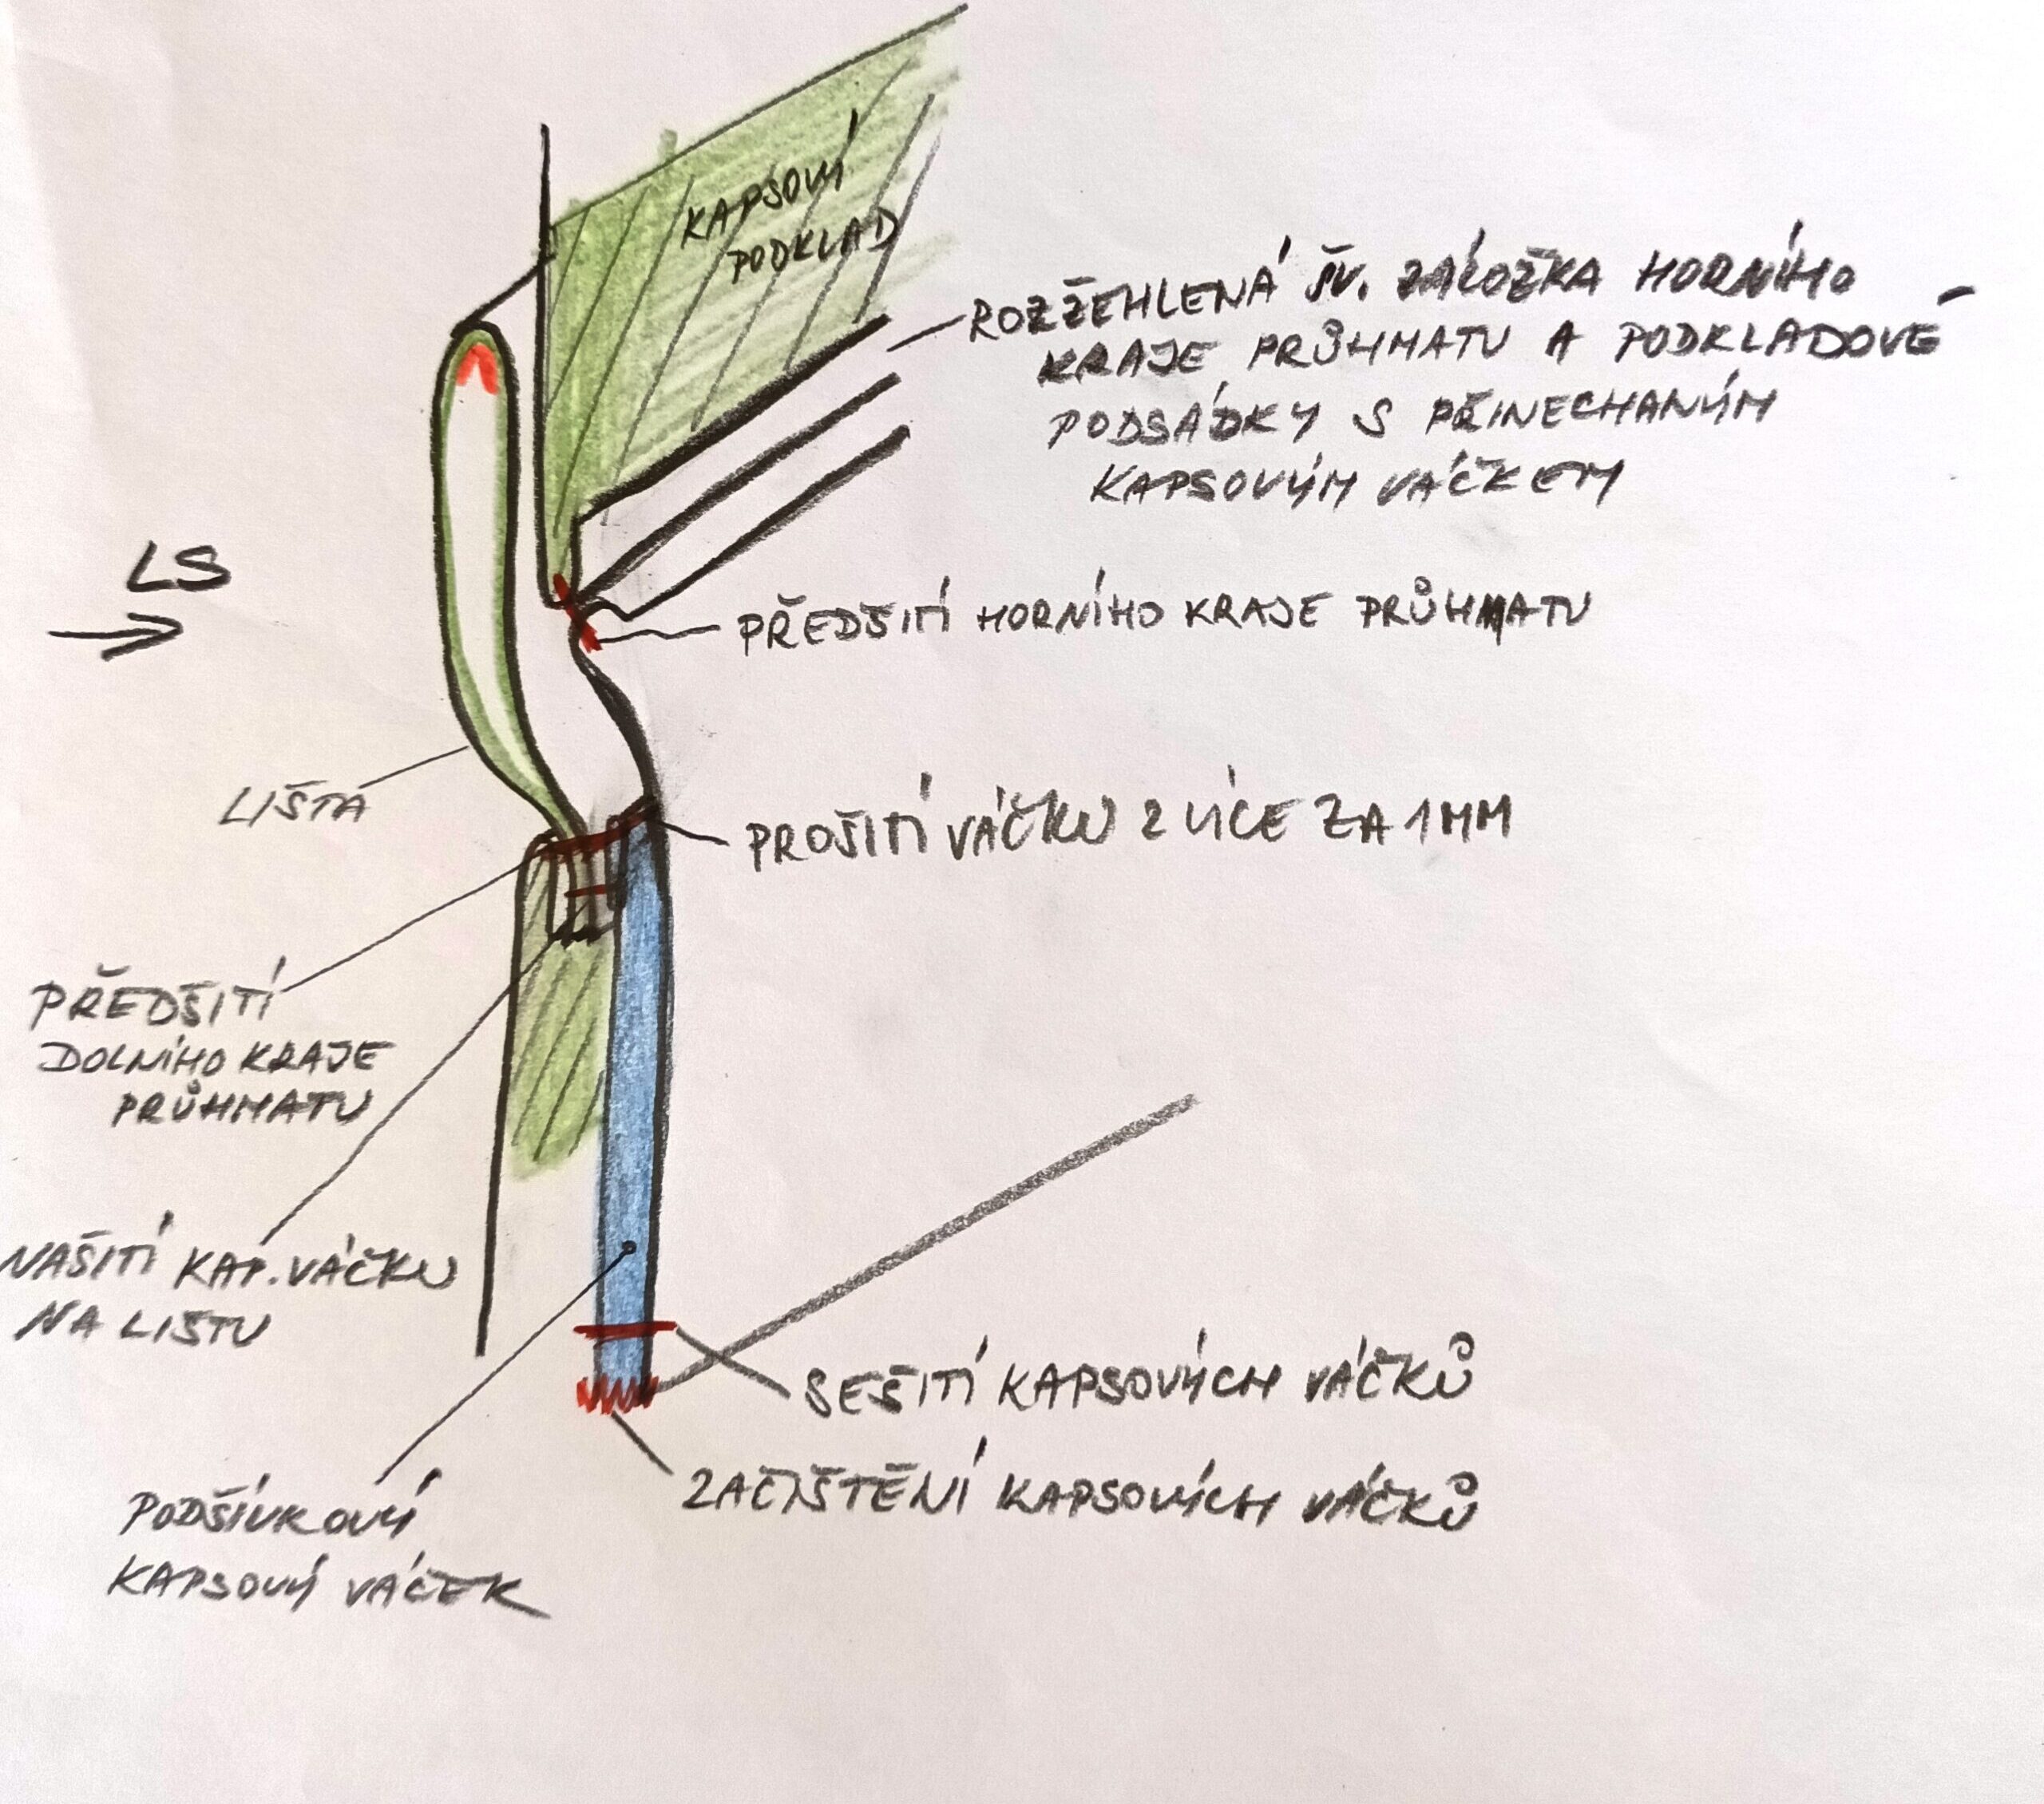 KAPSOVÝ
PODKLAD
ROZŽEHLENÁ ŠV. ZÁLOŽKA HORNÍHO
KRAJE PRŮHMATU A PODKLADOVÉ
PODSÁDKY S PŘINECHANÝM
KAPSOVÝM VÁČKEM
LS
PŘEDŠITÍ HORNÍHO KRAJE PRŮHMATU
LIŠTA
PROŠITÍ VÁČKU Z LÍCE ZA 1MM
PŘEDŠITÍ
DOLNÍHO KRAJE
PRŮHMATU
NAŠITÍ KAP. VÁČKU
NA LIŠTU
SEŠITÍ KAPSOVÝCH VÁČKŮ
ZAČIŠTĚNÍ KAPSOVÝCH VÁČKŮ
PODŠÍVKOVÝ
KAPSOVÝ VÁČEK